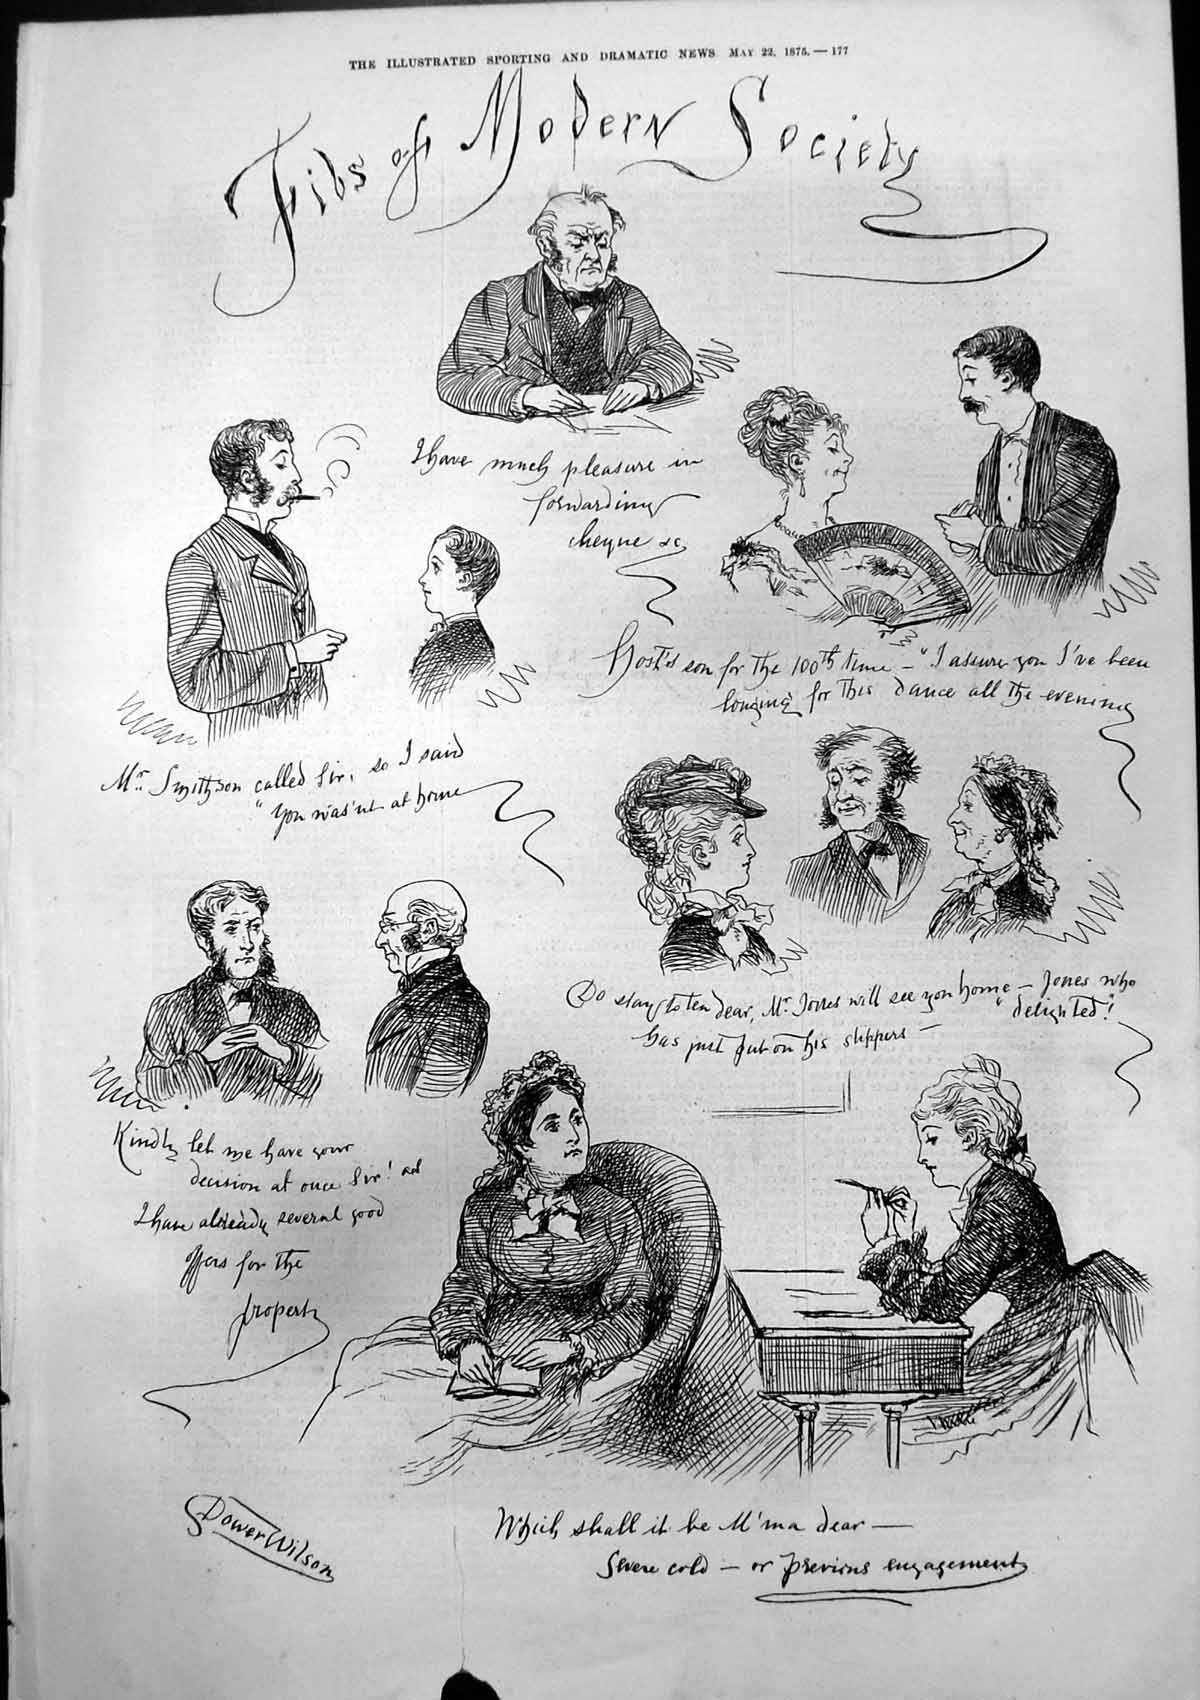 THE ILLUSTRATED SPORTING AND DRAMATIC NEWS MAY 22, 1875.—177
Fibs of Modern Society
I have much pleasure in
forwarding
cheque &c
Host's son for the 100th time – "I assure you I've been
longing for this dance all the evening
Mr. Smithson called Sir, so I said
"You was'nt at home
Do stay to ten dear, Mr. Jones will see you home – Jones who
has just put on his slippers – "delighted"!
Kindly let me have your
decision at once Sir! as
I have already several good
offers for the
property
Which shall it be M'ma dear —
Severe cold – or previous engagement
D Power Wilson